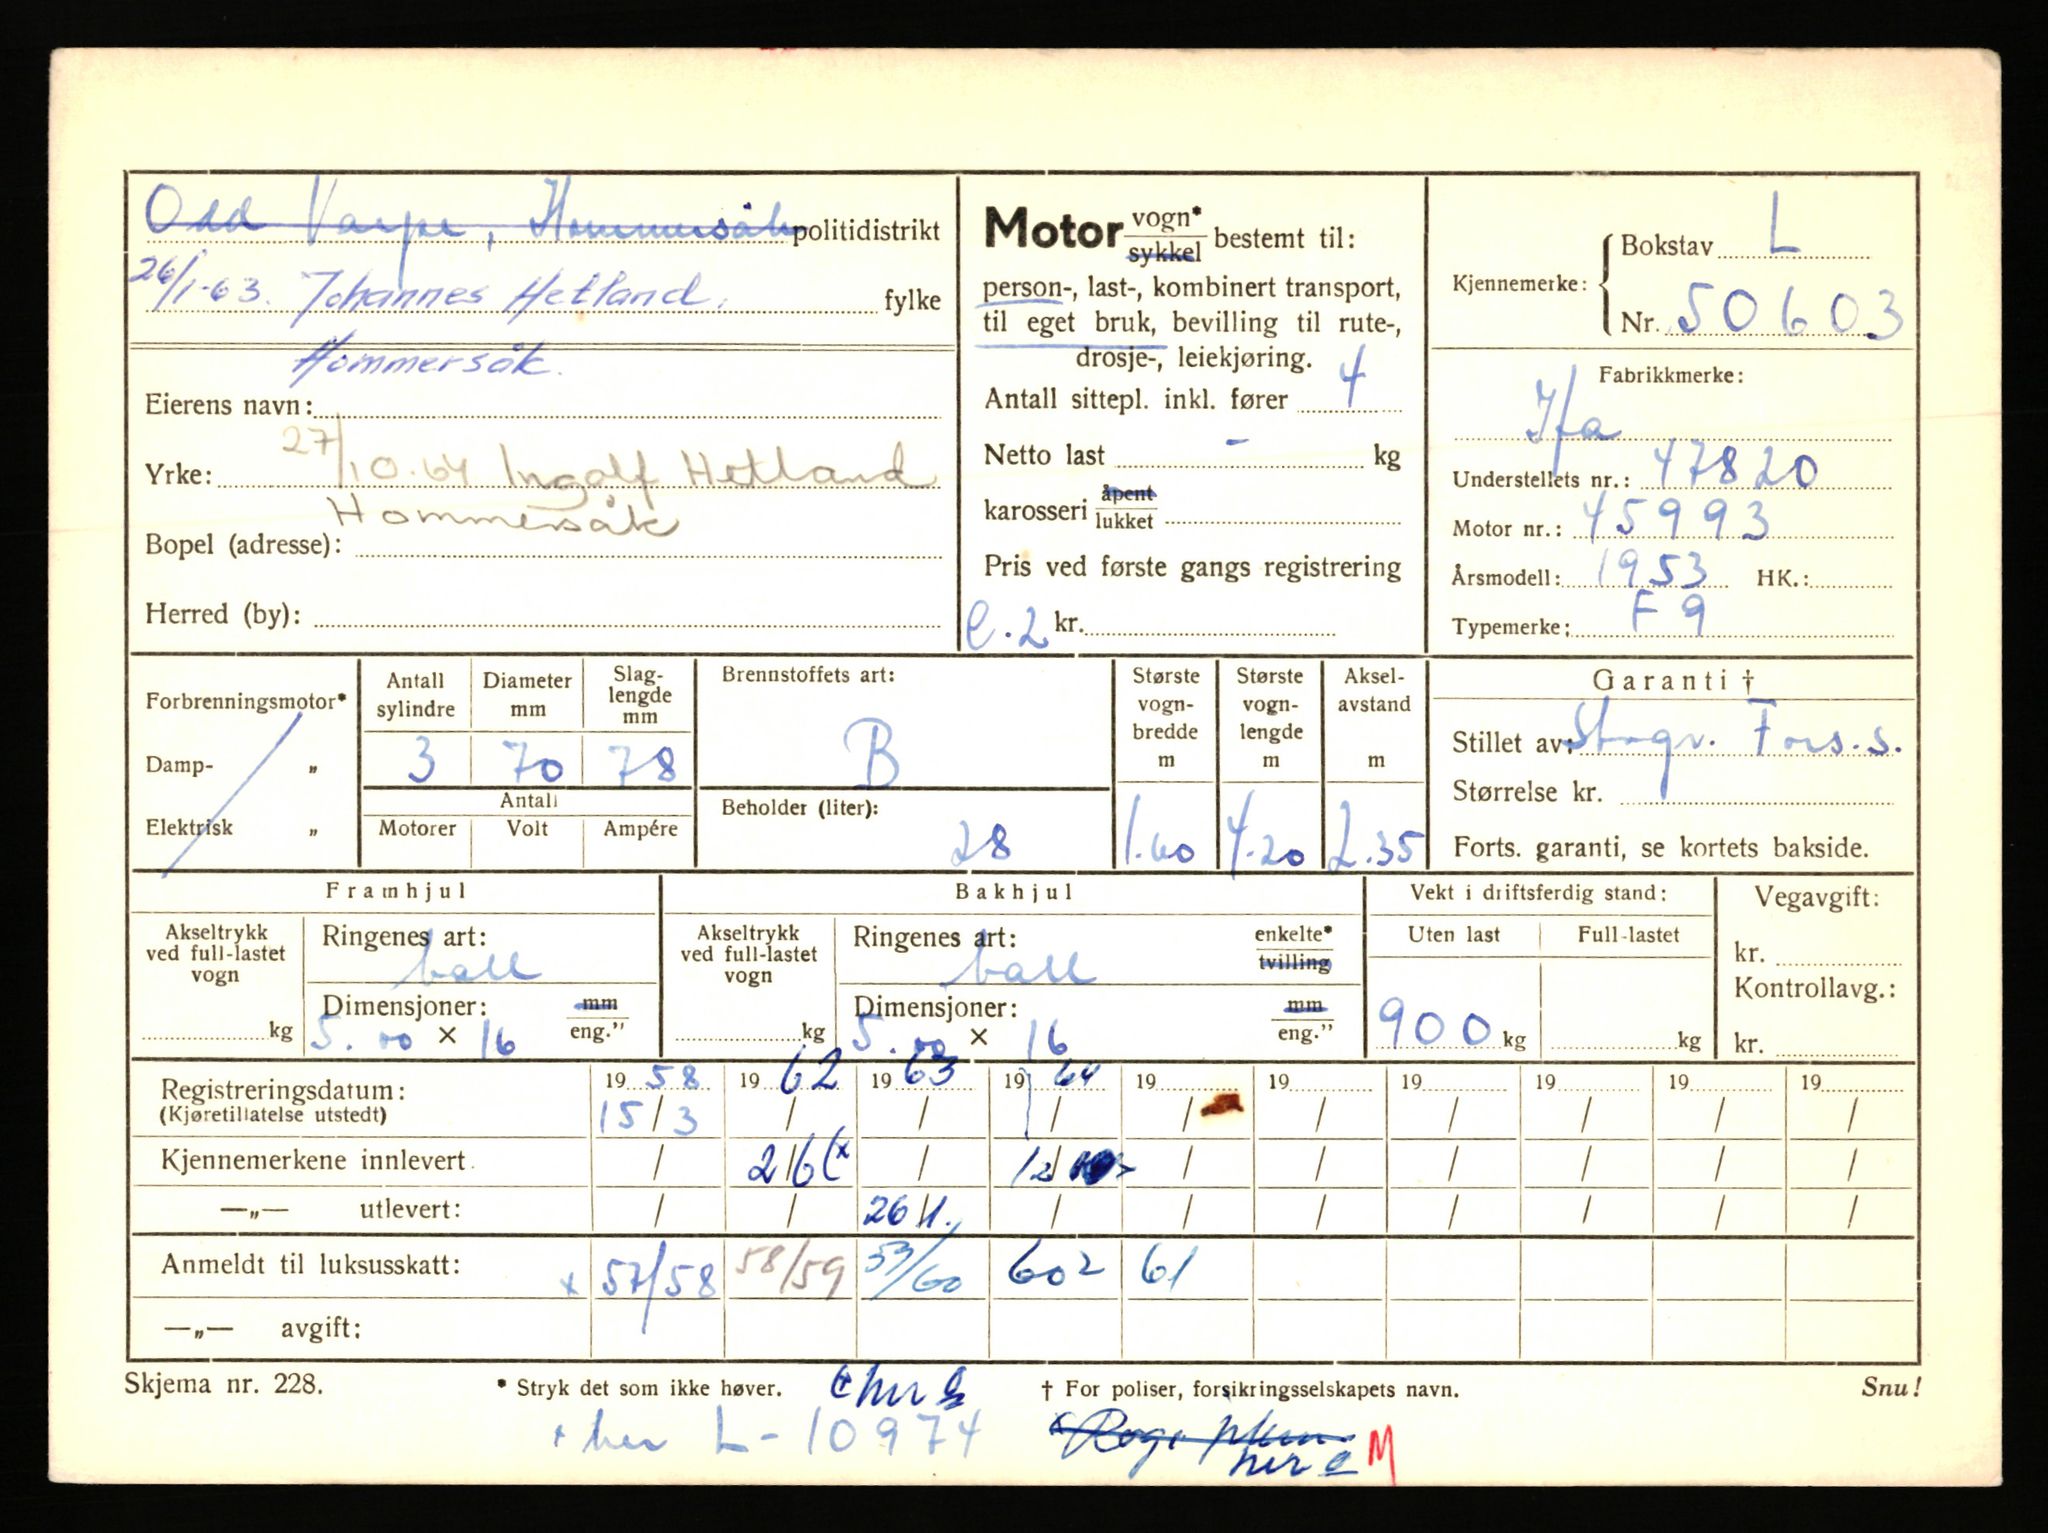 Odd Varpe, Hommersåk politidistrikt
26/1-63. Johannes Hetland, fylke
Hommersåk.
Eierens navn:
27/10.64 Ingolf Hetland
Yrke:
Hommersåk
Bopel (adresse):
Herred (by):
Motor vogn* / sykkel bestemt til:
person-, last-, kombinert transport,
til eget bruk, bevilling til rute-,
drosje-, leiekjøring.
Antall sittepl. inkl. fører 4
Netto last - kg
karosseri åpent / lukket
Pris ved første gangs registrering
e.2 kr.
Kjennemerke: { Bokstav L
Nr. 50603
Fabrikkmerke:
Ifa
Understellets nr.: 47820
Motor nr.: 45993
Årsmodell: 1953 HK.:
Typemerke: F 9
Forbrenningsmotor*
Damp- „
Elektrisk „
Antall sylindre Diameter mm Slag-lengde mm
3 70 78
Antall
Motorer Volt Ampére
Brennstoffets art:
B
Beholder (liter):
28
Største vogn-bredde m Største vogn-lengde m Aksel-avstand m
1.60 4.20 2.35
Garanti †
Stillet av: Fors.s.
Størrelse kr.
Forts. garanti, se kortets bakside.
Framhjul
Akseltrykk ved full-lastet vogn
kg
Ringenes art:
ball
Dimensjoner: mm / eng.”
5.00 × 16
Bakhjul
Akseltrykk ved full-lastet vogn
kg
Ringenes art: enkelte* / tvilling
ball
Dimensjoner: mm / eng.”
5.00 × 16
Vekt i driftsferdig stand:
Uten last Full-lastet
900 kg kg
Vegavgift:
kr.
Kontrollavg.:
kr.
Registreringsdatum: 1958 1962 1963 1964 19 19 19 19 19 19
(Kjøretillatelse utstedt) 15/3 / / / / / / / / /
Kjennemerkene innlevert. / 2/6 (x / 12/ / / / / / /
—„— utlevert: / / 26/1. / / / / / / /
Anmeldt til luksusskatt: x 57/58 58/59 59/60 602 61
—„— avgift:
Skjema nr. 228. * Stryk det som ikke høver. † For poliser, forsikringsselskapets navn. Snu!
+ her L-10974
her M